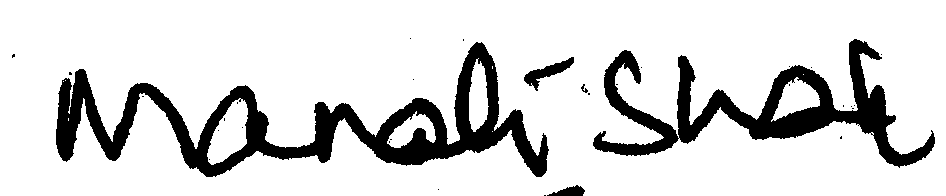 Manali Shah